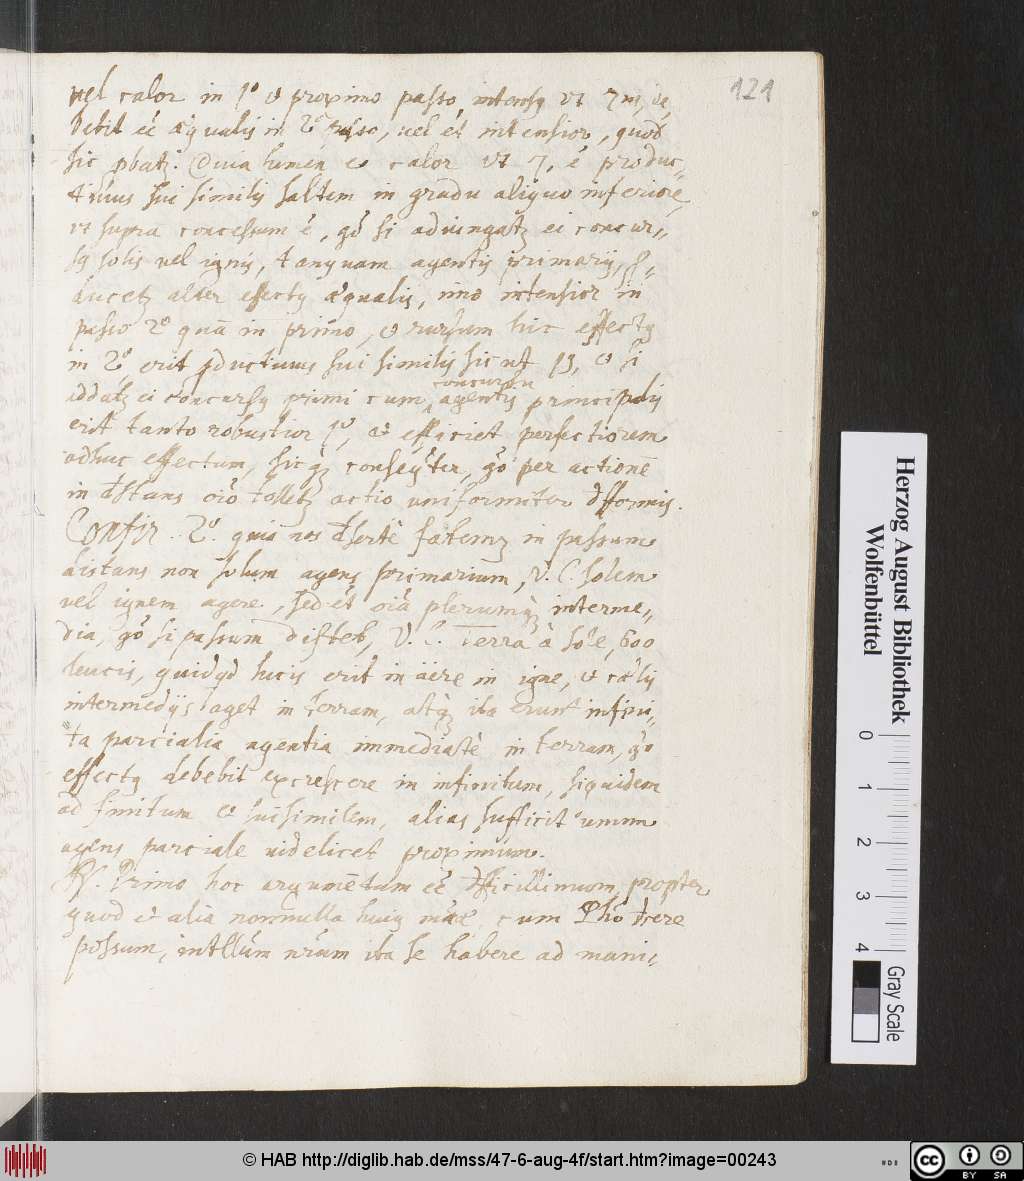 121
vel calor in 1° & proximo passo, intensq vt 7m, de
debit eé æqualis in 2° passo, vel ét intensior, quod
sic pbatz. Quia lumen & calor vt 7, é produc„
tiuus sui similis saltem in gradu aliquo inferiore,
vt supra concessum é, gó si adiungatz ei concur„
sq solis vel ignis, tanquam agentis primarij, p„
ducetz alter effectq æqualis, imo intensior in
passo 2° quā in primo, & rursum hic effectq
in 2° erit pductiuus sui similis sicut 13, & si
addatz ei concursq primi cum concursu agentis principalis
erit tanto robustior 1°, & efficiet perfectiorem
adhuc effectum, sicqz conseqter, gó per actionē
in dstans oió tolletz actio uniformiter dfformis.
Confir. 2°. quia nos dsertè fatemq in passum
distans non solum agens primarium, V. C. solem
vel ignem agere, sed ét oiā plerumqz interme„
dia, gó si passum distet, V. C. Terra à sole, 600
leucis, quidqd lucis erit in aëre in igne, & cælis
intermedijs aget in terram, atqz ita erunt infini„
ta parcialia agentia immediatè in terram, gó
effectq debebit excrescere in infinitum, siquidem
ad finitum & suisimilem, alias sufficit unum
agens parciale uidelicet proximum.
Rx. Primo hoc argumētum eé dfficillimum, propter
quod & alia nonnulla huiq māæ, cum Phō dcere
possum, intllūm nrūm ita se habere ad mani„
Herzog August Bibliothek
Wolfenbüttel
0 1 2 3 4
Gray Scale
© HAB http://diglib.hab.de/mss/47-6-aug-4f/start.htm?image=00243
cc BY SA